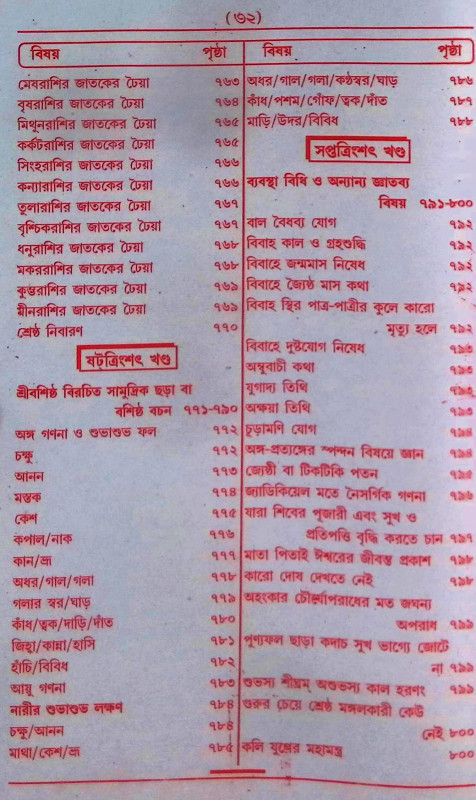 (৩২)
বিষয় পৃষ্ঠা
মেষরাশির জাতকের ঢৈয়া ৭৬৩
বৃষরাশির জাতকের ঢৈয়া ৭৬৪
মিথুনরাশির জাতকের ঢৈয়া ৭৬৫
কর্কটরাশির জাতকের ঢৈয়া ৭৬৫
সিংহরাশির জাতকের ঢৈয়া ৭৬৬
কন্যারাশির জাতকের ঢৈয়া ৭৬৬
তুলারাশির জাতকের ঢৈয়া ৭৬৭
বৃশ্চিকরাশির জাতকের ঢৈয়া ৭৬৭
ধনুরাশির জাতকের ঢৈয়া ৭৬৮
মকররাশির জাতকের ঢৈয়া ৭৬৮
কুম্ভরাশির জাতকের ঢৈয়া ৭৬৯
মীনরাশির জাতকের ঢৈয়া ৭৬৯
শ্রেষ্ঠ নিবারণ ৭৭০
ষট্‌ত্রিংশৎ খণ্ড
শ্রীবশিষ্ঠ বিরচিত সামুদ্রিক ছড়া বা
বশিষ্ঠ বচন ৭৭১-৭৯০
অঙ্গ গণনা ও শুভাশুভ ফল ৭৭২
চক্ষু ৭৭২
আনন ৭৭৩
মস্তক ৭৭৪
কেশ ৭৭৫
কপাল/নাক ৭৭৬
কান/ভ্রূ ৭৭৭
অধর/গাল/গলা ৭৭৮
গলার স্বর/ঘাড় ৭৭৯
কাঁধ/ত্বক/দাড়ি/দাঁত ৭৮০
জিহ্বা/কান্না/হাসি ৭৮১
হাঁচি/বিবিধ ৭৮২
আয়ু গণনা ৭৮৩
নারীর শুভাশুভ লক্ষণ ৭৮৪
চক্ষু/আনন ৭৮৪
মাথা/কেশ/ভ্রূ ৭৮৫
বিষয় পৃষ্ঠা
অধর/গাল/গলা/কণ্ঠস্বর/ঘাড় ৭৮৬
কাঁধ/পশম/গোঁফ/ত্বক/দাঁত ৭৮৭
মাড়ি/উদর/বিবিধ ৭৮৮
সপ্তত্রিংশৎ খণ্ড
ব্যবস্থা বিধি ও অন্যান্য জ্ঞাতব্য
বিষয় ৭৯১-৮০০
বাল বৈধব্য যোগ ৭৯২
বিবাহ কাল ও গ্রহশুদ্ধি ৭৯২
বিবাহে জন্মমাস নিষেধ ৭৯২
বিবাহে জ্যৈষ্ঠ মাস কথা ৭৯২
বিবাহ স্থির পাত্র-পাত্রীর কূলে কারো
মৃত্যু হলে ৭৯২
বিবাহে দুষ্টযোগ নিষেধ ৭৯৩
অম্বুবাচী কথা ৭৯৩
যুগাদ্য তিথি
অক্ষয়া তিথি
চূড়ামণি যোগ ৭৯৪
অঙ্গ-প্রত্যঙ্গের স্পন্দন বিষয়ে জ্ঞান ৭৯৪
জ্যেষ্ঠী বা টিকটিকি পতন ৭৯৫
জ্যাডিকিয়েল মতে নৈসর্গিক গণনা
যারা শিবের পূজারী এবং সুখ ও
প্রতিপত্তি বৃদ্ধি করতে চান ৭৯৭
মাতা পিতাই ঈশ্বরের জীবন্ত প্রকাশ ৭৯৮
কারো দোষ দেখতে নেই
অহংকার চৌর্য্যাপরাধের মত জঘন্য
অপরাধ ৭৯৯
পুণ্যফল ছাড়া কদাচ সুখ ভাগ্যে জোটে
না ৭৯৯
শুভস্য শীঘ্রম্ অশুভস্য কাল হরণং ৭৯৯
গুরুর চেয়ে শ্রেষ্ঠ মঙ্গলকারী কেউ
নেই ৮০০
কলি যুগের মহামন্ত্র ৮০০